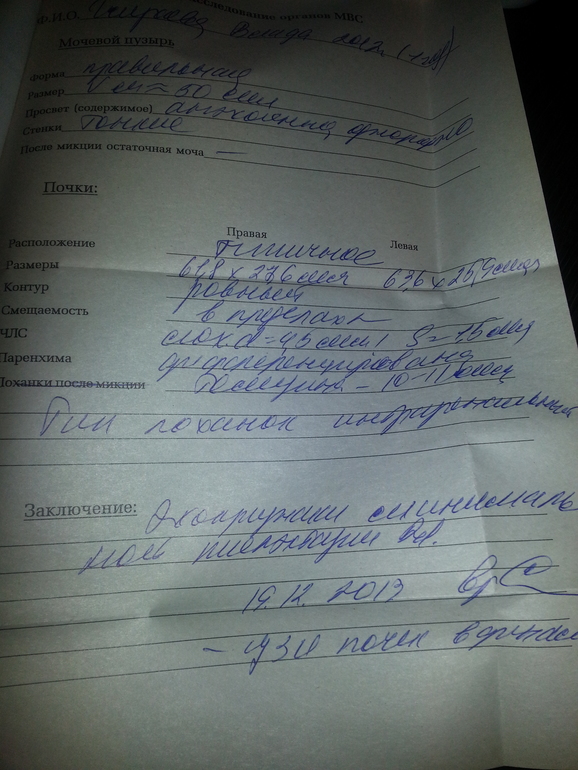 исследование органов МВС
Ф.И.О. Влада 2012г. (1 год)
Мочевой пузырь
Форма правильная
Размер V см = 50 мл
Просвет (содержимое) анэхогенно однородно
Стенки тонкие
После микции остаточная моча —
Почки:
Правая Левая
Расположение Типичное
Размеры 61,8 х 27,6 мм 63,6 х 25,9 мм
Контур ровный
Смещаемость в пределах
ЧЛС d = 4,5 мм S = 7,5 мм
Паренхима дифференцирована
Лоханки после микции толщина – 10-11 мм
Тип лоханок интраренальный
Заключение: Эхопризнаки минималь
ной пиелэктазии
19.12.2013 Вр
– УЗИ почек в динам